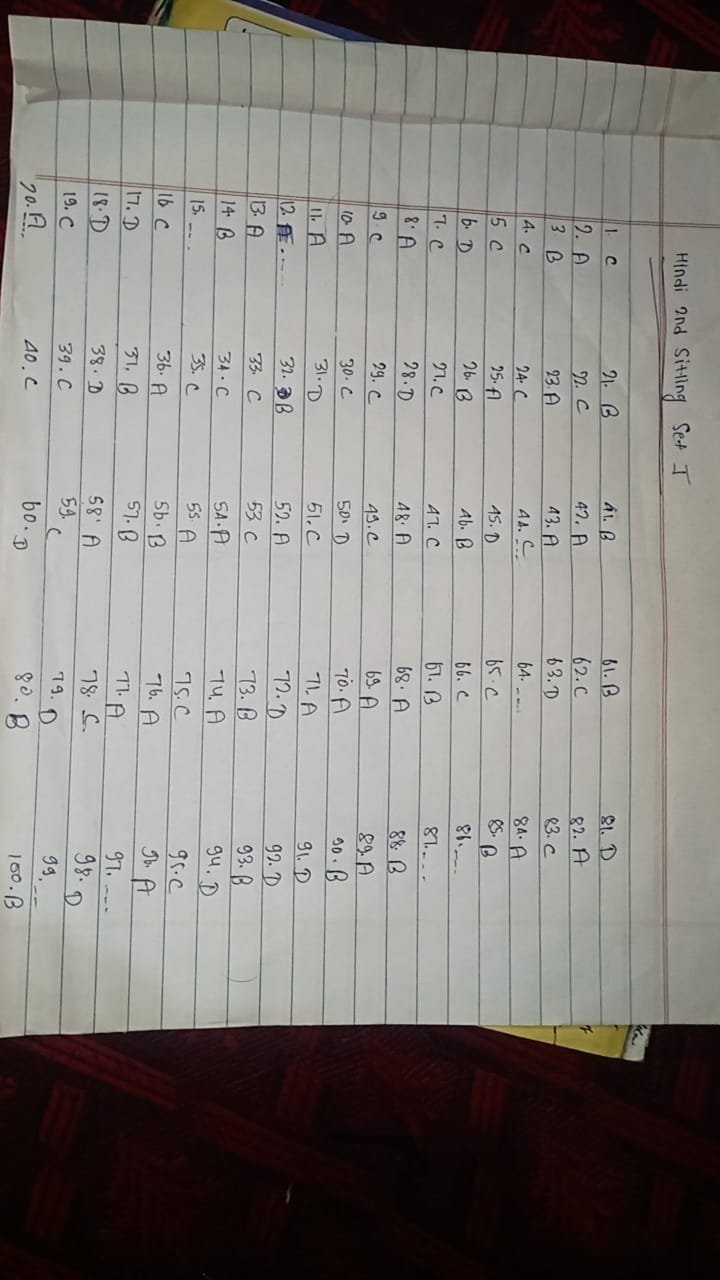 Hindi 2nd Sitting Set I
1. C 21. B 41. B 61. B 81. D
2. A 22. C 42. A 62. C 82. A
3 B 23. A 43. A 63. D 83. C
4. C 24. C 44. C.... 64. .... 84. A
5 C 25. A 45. D 65. C 85. B
6. D 26. B 46. B 66. C 86. ....
7. C 27. C 47. C 67. B 87. ....
8. A 28. D 48. A 68. A 88. B
9. C 29. C 49. C 69. A 89. A
10. A 30. C 50. D 70. A 90. B
11. A 31. D 51. C 71. A 91. D
12. .... 32. B 52. A 72. D 92. D
13. A 33. C 53. C 73. B 93. B
14. B 34. C 54. A 74. A 94. D
15. .... 35. C 55. A 75. C 95. C
16. C 36. A 56. B 76. A 96. A
17. D 37. B 57. B 77. A 97. ....
18. D 38. D 58. A 78. C. 98. D
19. C 39. C 59. C 79. D 99. ...
20. A 40. C 60. D 80. B 100. B